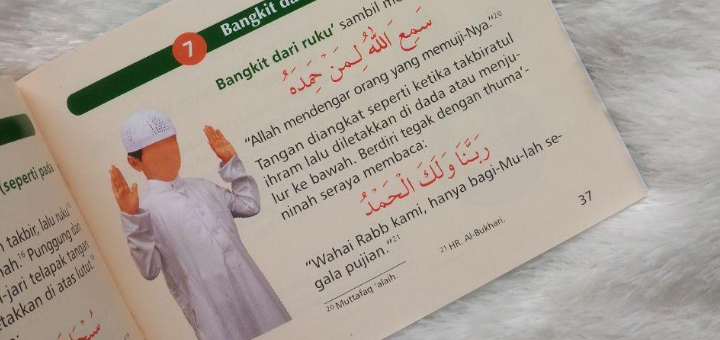 (seperti pada
takbir, lalu ruku'
nah.¹⁶ Punggung dan
i-jari telapak tangan
takkan di atas lutut
7
Bangkit
Bangkit dari ruku' sambil
سَمِعَ اللهُ لِمَنْ حَمِدَهُ
"Allah mendengar orang yang memuji-Nya."²⁰
Tangan diangkat seperti ketika takbiratul
ihram lalu diletakkan di dada atau menju-
lur ke bawah. Berdiri tegak dengan thuma'-
ninah seraya membaca:
رَبَّنَا وَلَكَ الْحَمْدُ
"Wahai Rabb kami, hanya bagi-Mu-lah se-
gala pujian."²¹
20 Muttafaq 'alaih.
21 HR. Al-Bukhari.
37